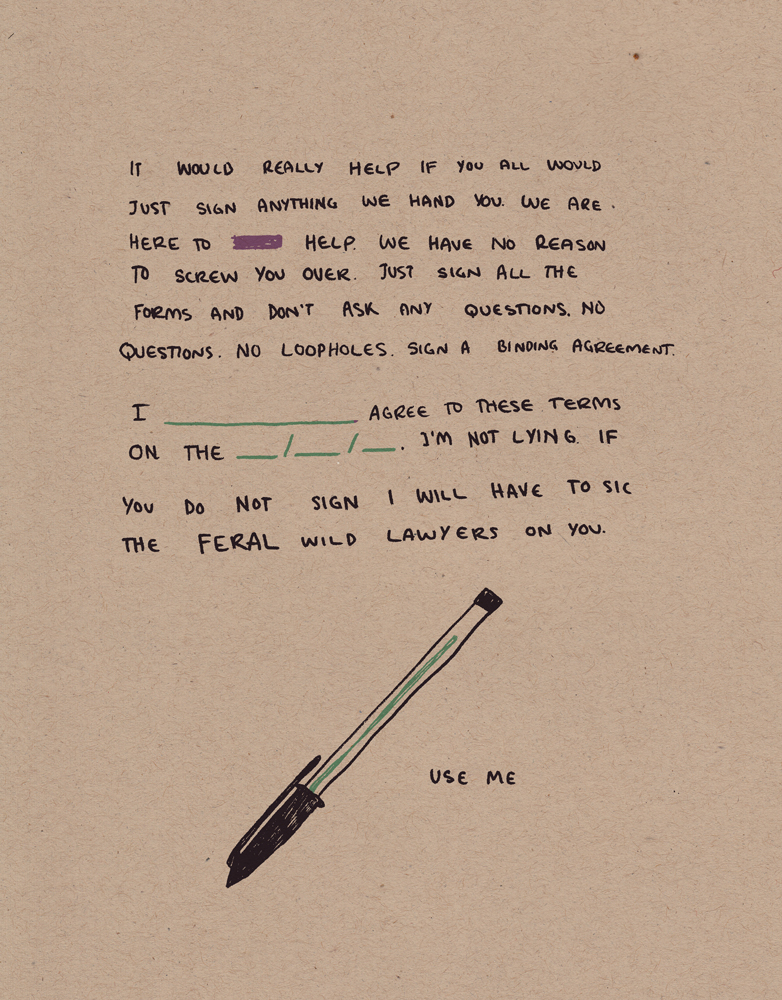 IT WOULD REALLY HELP IF YOU ALL WOULD
JUST SIGN ANYTHING WE HAND YOU. WE ARE.
HERE TO HELP. WE HAVE NO REASON
TO SCREW YOU OVER. JUST SIGN ALL THE
FORMS AND DON'T ASK ANY QUESTIONS. NO
QUESTIONS. NO LOOPHOLES. SIGN A BINDING AGREEMENT.
I ____________ AGREE TO THESE TERMS
ON THE __/__/__. I'M NOT LYING. IF
YOU DO NOT SIGN I WILL HAVE TO SIC
THE FERAL WILD LAWYERS ON YOU.
USE ME